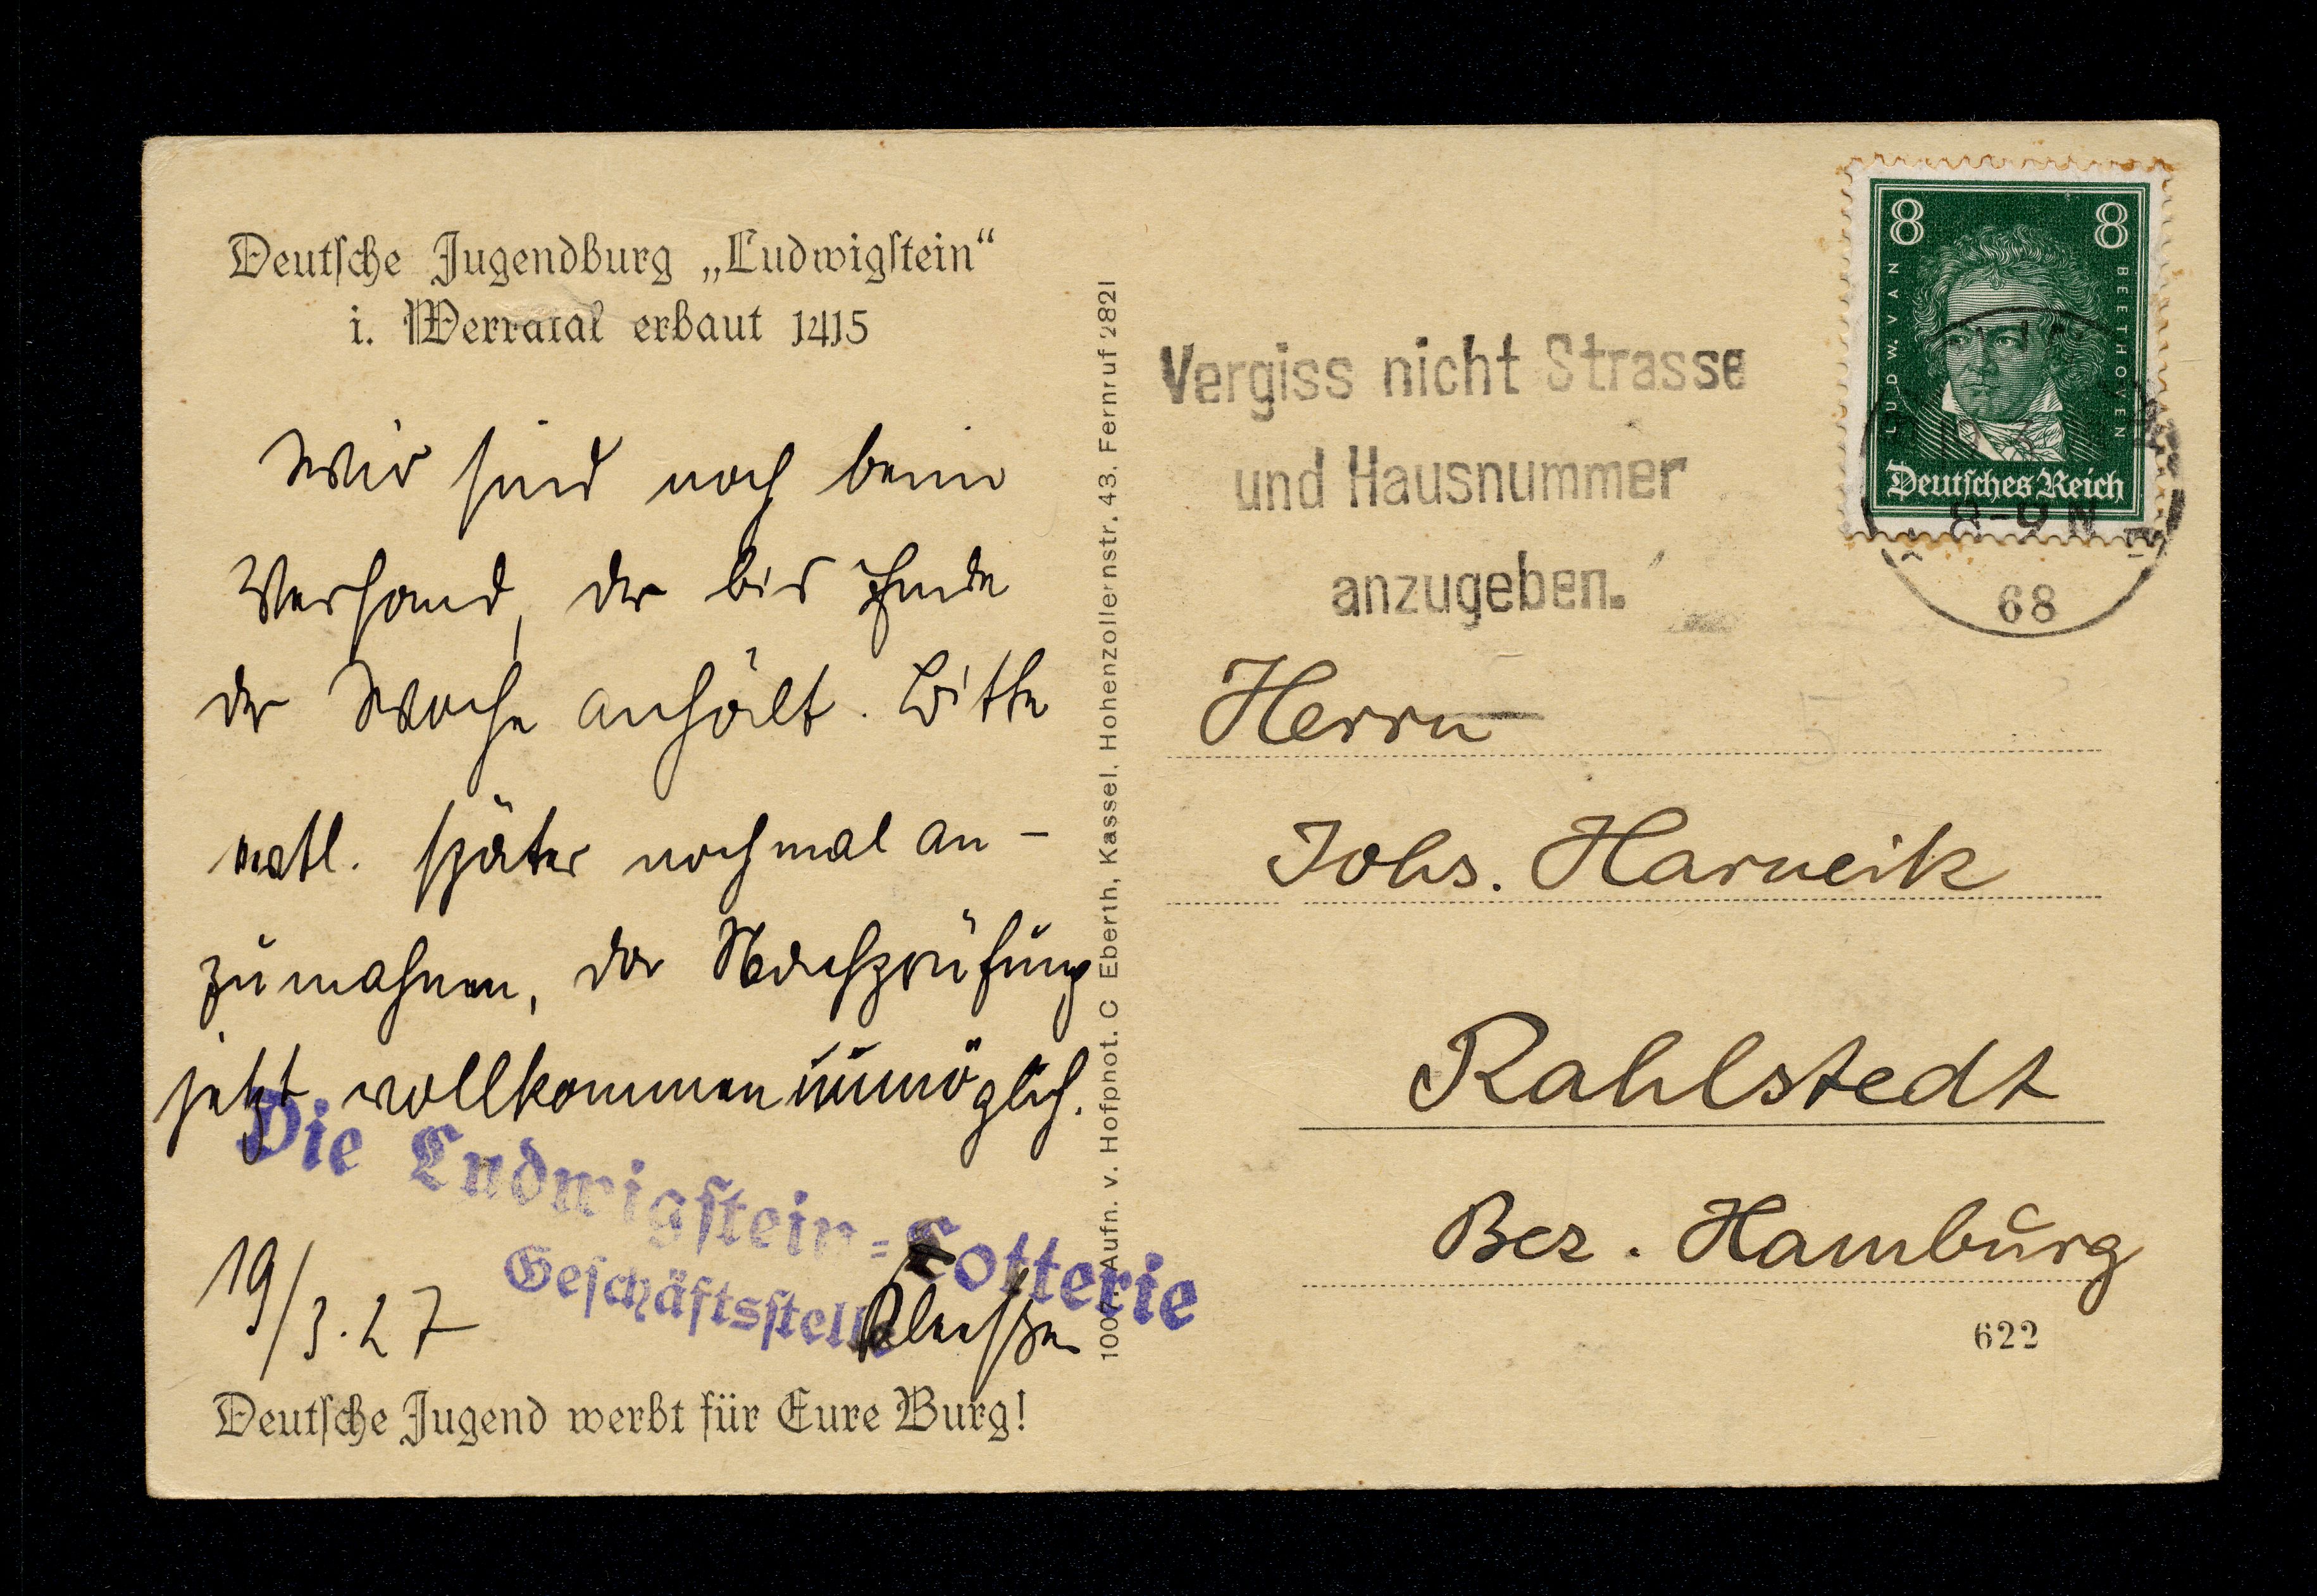 Deutsche Jugendburg „Ludwigstein“
i. Werratal erbaut 1415
Wir sind noch beim
Versand, der bis Ende
der Woche anhält. Bitte
evtl. später nochmal an-
zumahnen, da Nachprüfung
jetzt vollkommen unmöglich.
Die Ludwigstein=Lotterie
Geschäftsstelle
19/3.27
Deutsche Jugend werbt für Eure Burg!
Aufn. v. Hofphot. C Eberth, Kassel, Hohenzollernstr. 43. Fernruf 2821
Vergiss nicht Strasse
und Hausnummer
anzugeben.
8 8
LUDW. VAN BEETHOVEN
Deutsches Reich
8-9 N
68
Herrn
Johs. Harneik
Rahlstedt
Bez. Hamburg
622